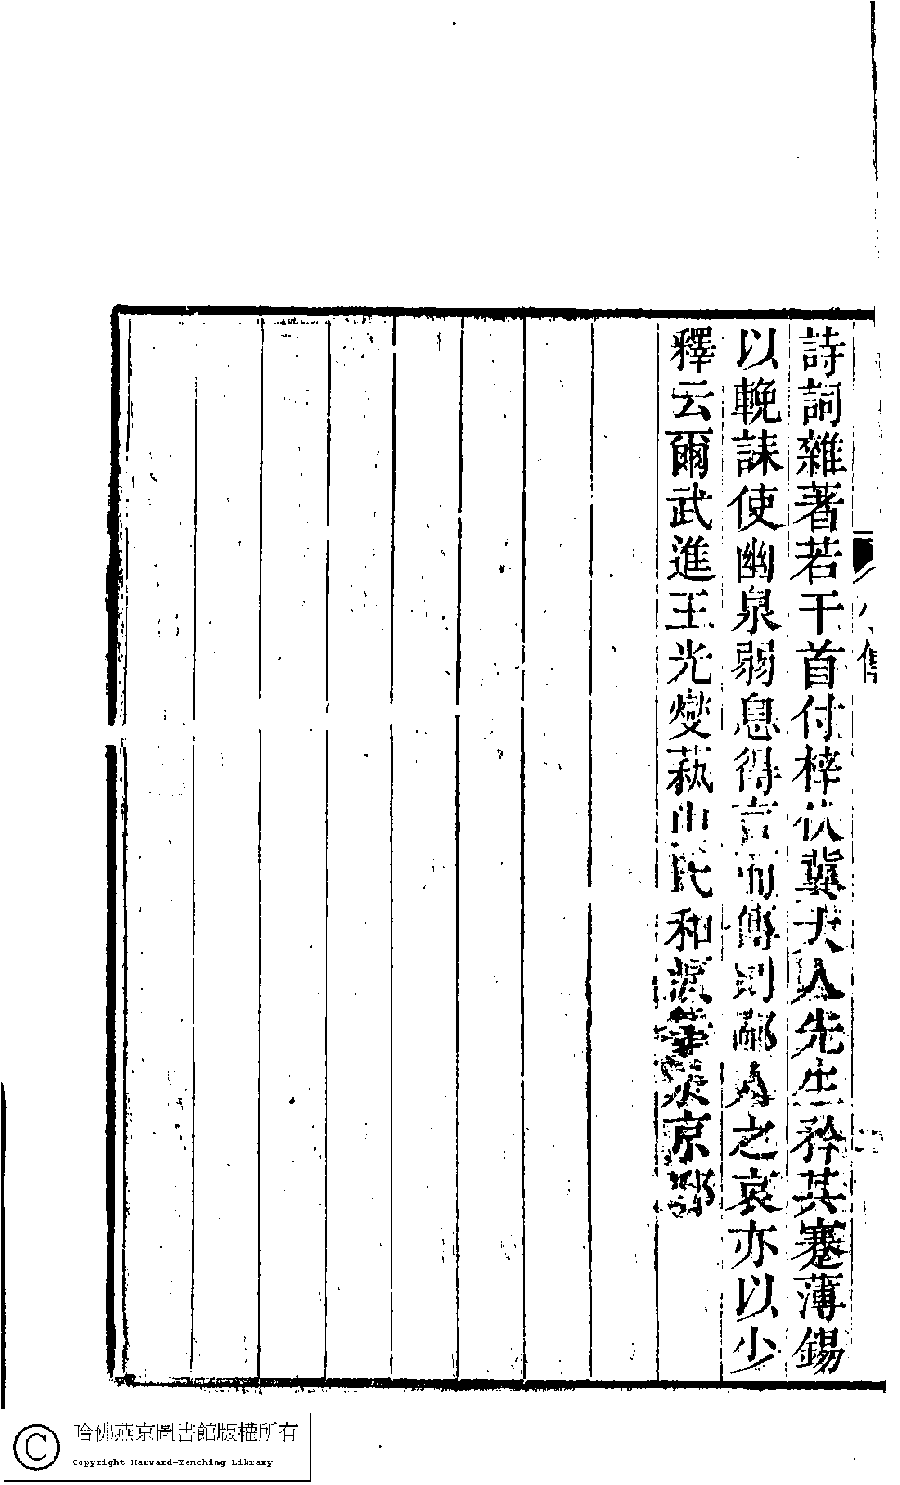 詩詞雜著若干首付梓伏冀大人先生矜其蹇薄錫
以輓誄使幽泉弱息得言而傳則鄙人之哀亦以少
釋云爾武進王光燮蓺山氏和淚筆於京邸
小傳
哈佛燕京圖書館版權所有
Copyright Harvard-Yenching Library